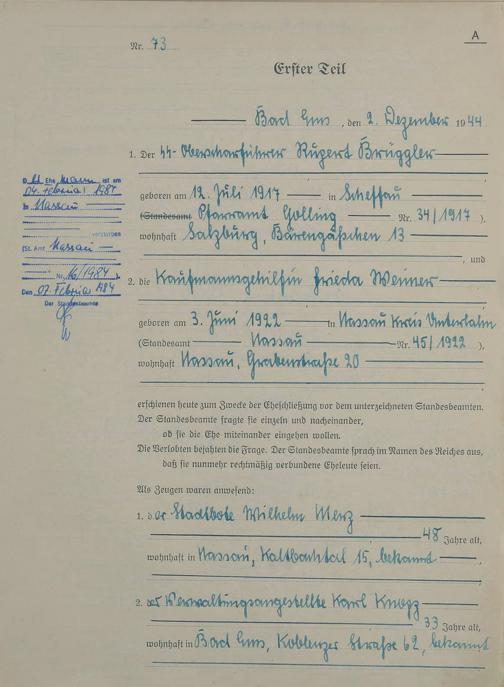 A
Nr. 73
Erster Teil
Bad Ems, den 2. Dezember 1944
1. Der SS-Oberscharführer Rupert Brüggler
geboren am 12. Juli 1917 in Scheffau
(Standesamt Pfarramt Golling Nr. 34/1917),
wohnhaft Salzburg, Bärengäßchen 13
, und
2. die Kaufmannsgehilfin Frieda Weimer
geboren am 3. Juni 1922 in Nassau Kreis Unterlahn
(Standesamt Nassau Nr. 45/1922),
wohnhaft Nassau, Grabenstraße 20
erschienen heute zum Zwecke der Eheschließung vor dem unterzeichneten Standesbeamten.
Der Standesbeamte fragte sie einzeln und nacheinander,
ob sie die Ehe miteinander eingehen wollen.
Die Verlobten bejahten die Frage. Der Standesbeamte sprach im Namen des Reiches aus,
daß sie nunmehr rechtmäßig verbundene Eheleute seien.
Als Zeugen waren anwesend:
1. der Stadtbote Wilhelm Merz
48 Jahre alt,
wohnhaft in Nassau, Kaltbachtal 15, bekannt
2. der Verwaltungsangestellte Karl
33 Jahre alt,
wohnhaft in Bad Ems, Koblenzer Straße 62, bekannt
Ehemann ist am
04. Februar
in Nassau
verstorben
(St. Amt Nassau
Nr. 16/1984).
Den 07. Februar 1984
Der Standesbeamte